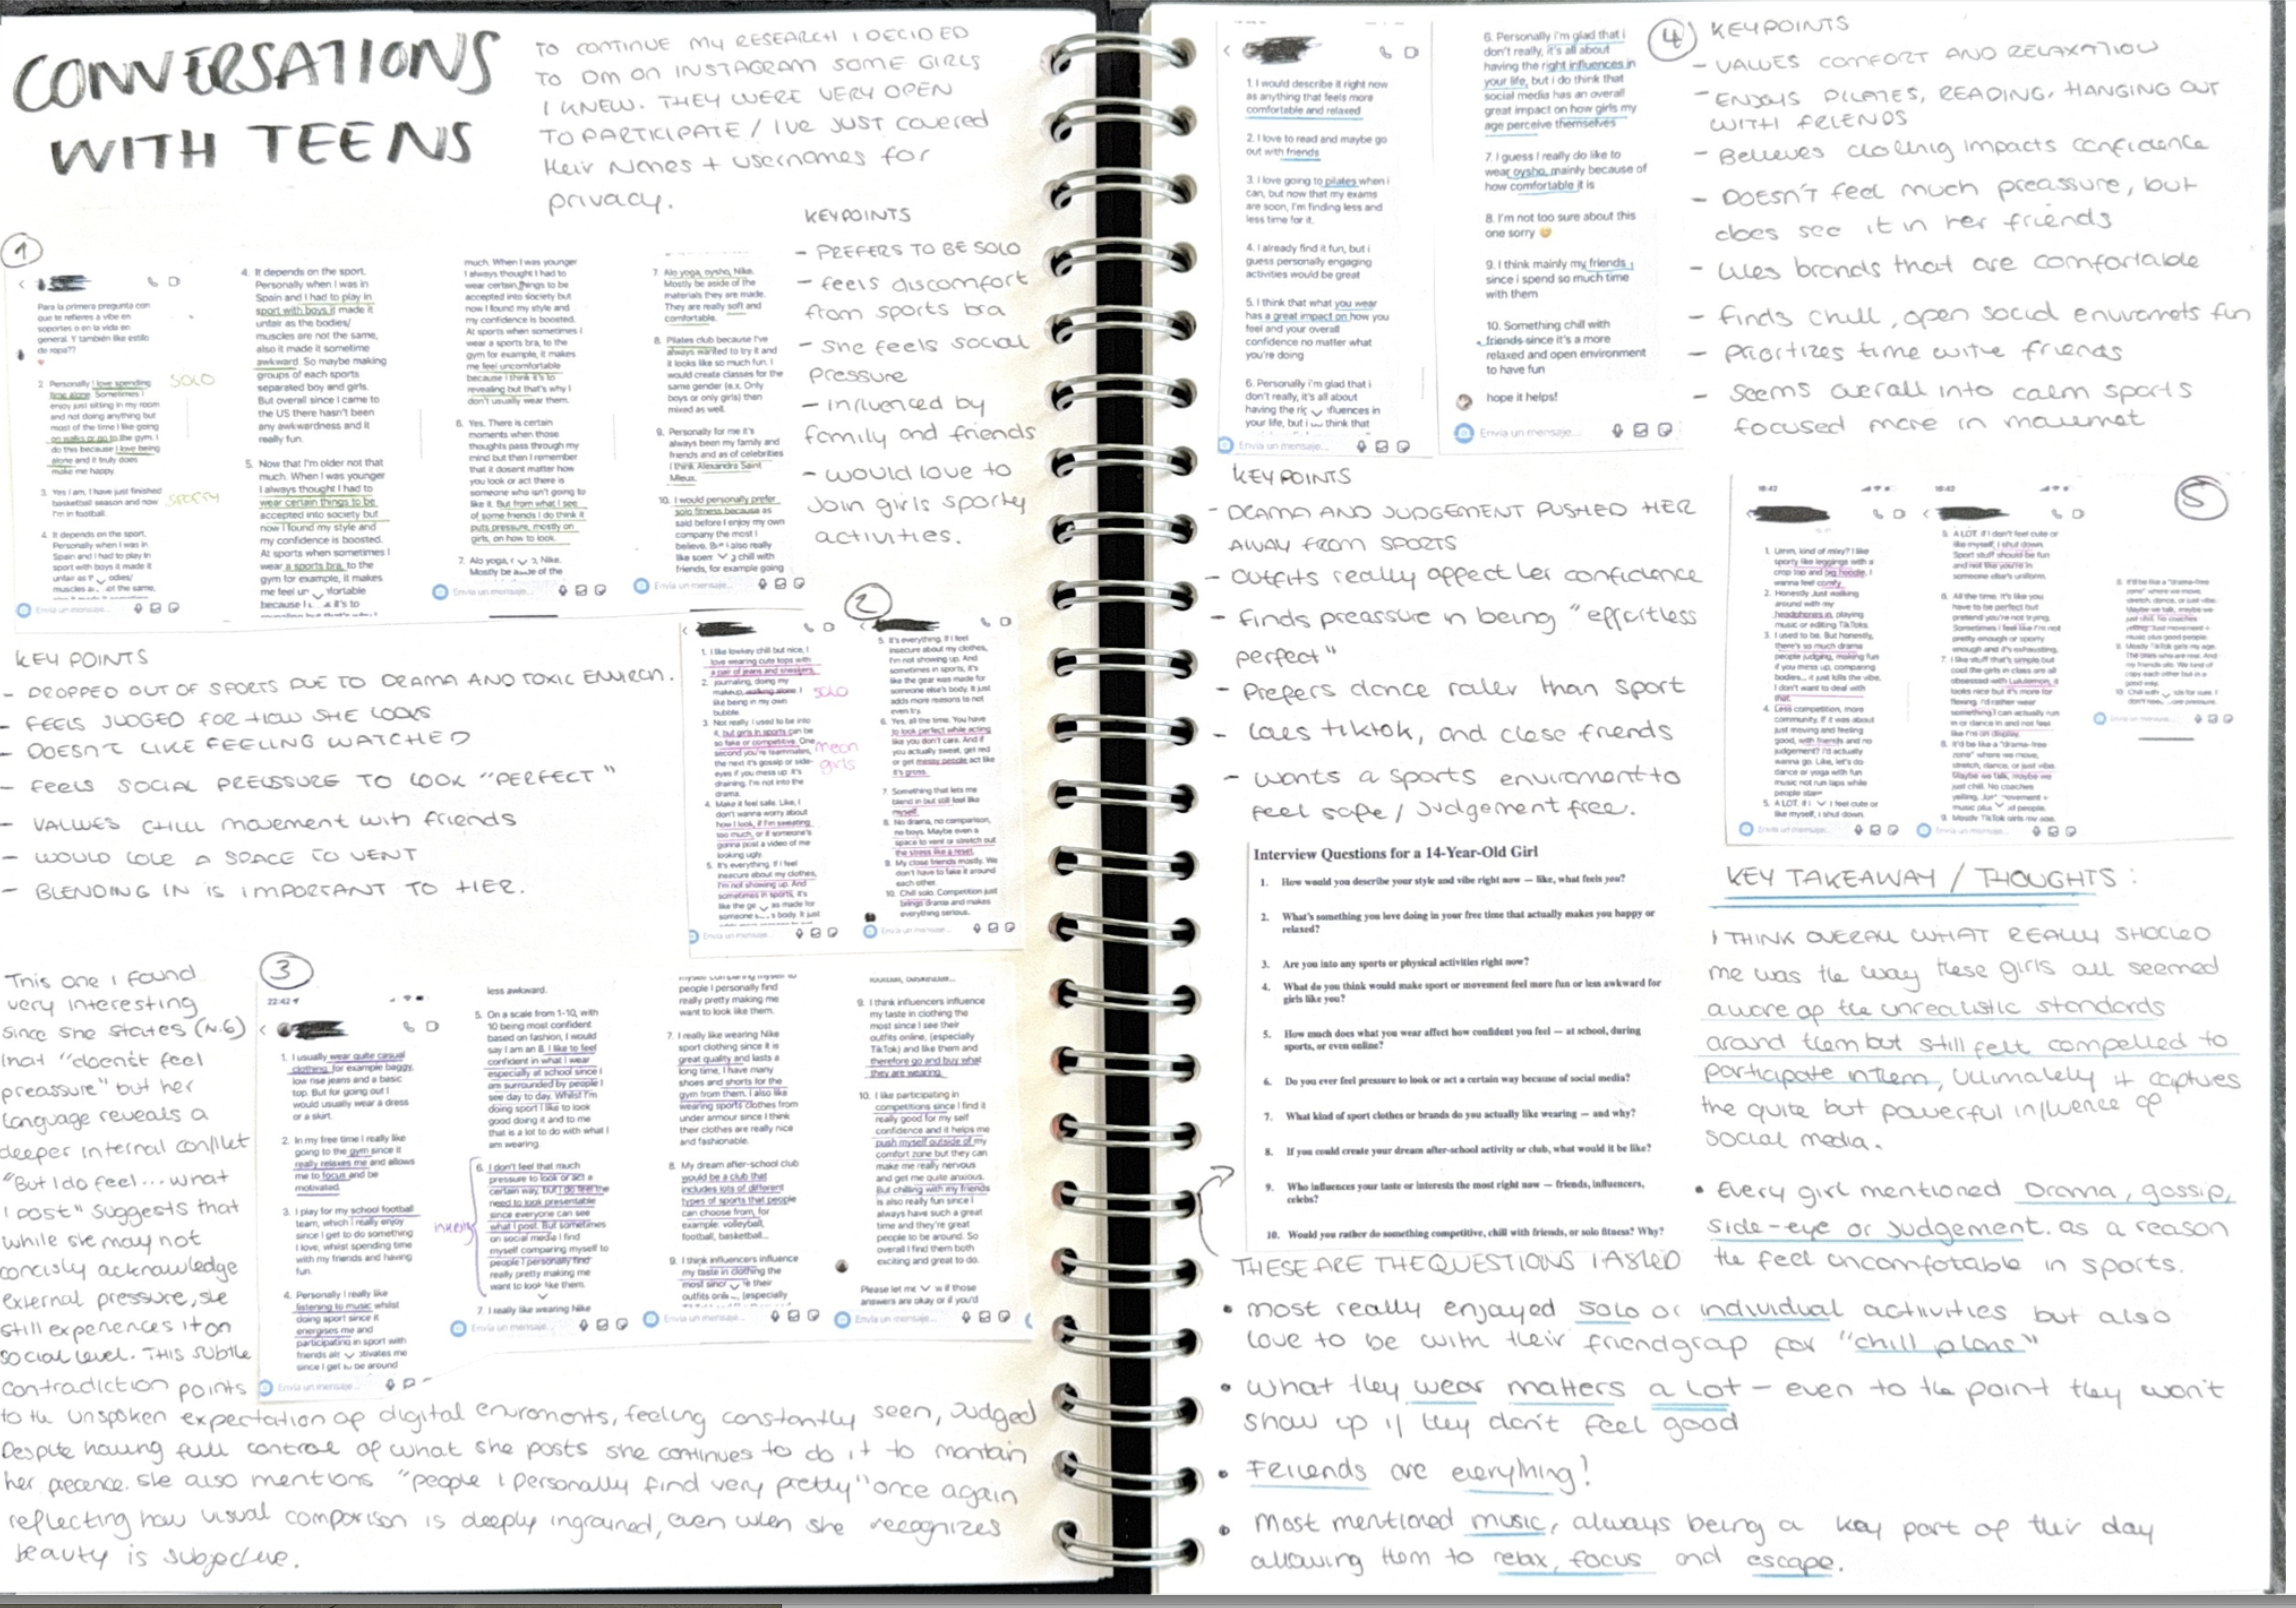 CONVERSATIONS
WITH TEENS
TO CONTINUE MY RESEARCH I DECIDED
TO DM ON INSTAGRAM SOME GIRLS
I KNEW. THEY WERE VERY OPEN
TO PARTICIPATE / IVE JUST covered
their Names + usernames for
privacy.
1
Para la primera pregunta con
que te refieres a vibe en
soportes o en la vida en
general. Y también like estilo
de ropa??
2. Personally I love spending
time alone. Sometimes I
enjoy just sitting in my room
and not doing anything but
most of the time I like going
on walks or go to the gym. I
do this because I love being
alone and it truly does
make me happy
SOLO
3. Yes I am, I have just finished
basketball season and now
I'm in football.
SPORTY
4. It depends on the sport.
Personally when I was in
Spain and I had to play in
sport with boys it made it
4. It depends on the sport.
Personally when I was in
Spain and I had to play in
sport with boys it made it
unfair as the bodies/
muscles are not the same,
also it made it sometime
awkward. So maybe making
groups of each sports
separated boy and girls.
But overall since I came to
the US there hasn't been
any awkwardness and it
really fun.
5. Now that I'm older not that
much. When I was younger
I always thought I had to
wear certain things to be
accepted into society but
now I found my style and
my confidence is boosted.
At sports when sometimes I
wear a sports bra, to the
gym for example, it makes
much. When I was younger
I always thought I had to
wear certain things to be
accepted into society but
now I found my style and
my confidence is boosted.
At sports when sometimes I
wear a sports bra, to the
gym for example, it makes
me feel uncomfortable
because I think it's to
revealing but that's why I
don't usually wear them.
6. Yes. There is certain
moments when those
thoughts pass through my
mind but then I remember
that it dosent matter how
you look or act there is
someone who isn't going to
like it. But from what I see
of some friends I do think it
puts pressure, mostly on
girls, on how to look.
7. Alo yoga, Nike.
7. Alo yoga, oysho, Nike.
Mostly be aside of the
materials they are made.
They are really soft and
comfortable.
8. Pilates club because I've
always wanted to try it and
it looks like so much fun. I
would create classes for the
same gender (e.x. Only
boys or only girls) then
mixed as well.
9. Personally for me it's
always been my family and
friends and as of celebrities
I think Alexandra Saint
Mleux.
10. I would personally prefer
solo fitness because as
said before I enjoy my own
company the most I
believe. But I also really
friends, for example going
Envía un mensaje...
KEYPOINTS
- PREFERS TO BE SOLO
- feels discomfort
from sports bra
- She feels social
pressure
- influenced by
family and friends
- would love to
join girls sporty
activities.
KEY POINTS
- DROPPED OUT OF SPORTS DUE TO DRAMA AND TOXIC ENVIRON.
- FEELS JUDGED FOR HOW SHE LOOKS
- DOESN'T LIKE FEELING WATCHED
- FEELS SOCIAL PRESSURE TO LOOK "PERFECT"
- VALUES CHILL movement with friends
- WOULD LOVE A SPACE TO VENT
- BLENDING IN IS IMPORTANT TO HER.
2
1. I like lowkey chill but nice, I
love wearing cute tops with
a pair of jeans and sneakers
2. journaling, doing my
makeup, walking alone. I
like being in my own
bubble.
SOLO
3. Not really. I used to be into
it, but girls in sports can be
so fake or competitive. One
second you're teammates,
the next it's gossip or side-
eyes if you mess up. It's
draining. I'm not into the
drama.
mean
girls
4. Make it feel safe. Like, I
don't wanna worry about
how I look, if I'm sweating
too much, or if someone's
gonna post a video of me
looking ugly.
5. It's everything. If I feel
insecure about my clothes,
I'm not showing up. And
sometimes in sports, it's
5. It's everything. If I feel
insecure about my clothes,
I'm not showing up. And
sometimes in sports, it's
like the gear was made for
someone else's body. It just
adds more reasons to not
even try.
6. Yes, all the time. You have
to look perfect while acting
like you don't care. And if
you actually sweat, get red
or get messy people act like
it's gross.
7. Something that lets me
blend in but still feel like
myself
8. No drama, no comparison,
no boys. Maybe even a
space to vent or stretch out
the stress like a reset.
9. My close friends mostly. We
don't have to fake it around
each other.
10. Chill solo. Competition just
brings drama and makes
everything serious.
Envía un mensaje...
This one I found
very interesting
since she states (N.6)
that "doen't feel
preassure" but her
language reveals a
deeper internal conflict
"But I do feel...what
I post" suggests that
while she may not
concisly acknowledge
external pressure, she
still experiences it on
social level. THIS SUBTLE
contradiction points
to the unspoken expectation of digital enviroments, feeling constantly seen, Judged
Despite having full control of what she posts she continues to do it to mantain
her precence. she also mentions "people I personally find very pretty" once again
reflecting how visual comparison is deeply ingrained, even when she recognizes
beauty is subjective.
3
22:42
1. I usually wear quite casual
clothing, for example baggy,
low rise jeans and a basic
top. But for going out I
would usually wear a dress
or a skirt.
2. In my free time I really like
going to the gym since it
really relaxes me and allows
me to focus and be
motivated.
3. I play for my school football
team, which I really enjoy
since I get to do something
I love, whilst spending time
with my friends and having
fun.
4. Personally I really like
listening to music whilst
doing sport since it
energises me and
participating in sport with
since I get to be around
less awkward.
5. On a scale from 1-10, with
10 being most confident
based on fashion, I would
say I am an 8. I like to feel
confident in what I wear
especially at school since I
am surrounded by people I
see day to day. Whilst I'm
doing sport I like to look
good doing it and to me
that is a lot to do with what I
am wearing.
6. I don't feel that much
pressure to look or act a
certain way, but I do feel the
need to look presentable
since everyone can see
what I post. But sometimes
on social media I find
myself comparing myself to
people I personally find
really pretty making me
want to look like them.
7. I really like wearing Nike
people I personally find
really pretty making me
want to look like them.
7. I really like wearing Nike
sport clothing since it is
great quality and lasts a
long time, I have many
shoes and shorts for the
gym from them. I also like
wearing sports clothes from
under armour since I think
their clothes are really nice
and fashionable.
8. My dream after-school club
would be a club that
includes lots of different
types of sports that people
can choose from, for
example: volleyball,
football, basketball...
9. I think influencers influence
my taste in clothing the
9. I think influencers influence
my taste in clothing the
most since I see their
outfits online, (especially
TikTok) and like them and
therefore go and buy what
they are wearing.
10. I like participating in
competitions since I find it
really good for my self
confidence and it helps me
push myself outside of my
comfort zone but they can
make me really nervous
and get me quite anxious.
But chilling with my friends
is also really fun since I
always have such a great
time and they're great
people to be around. So
overall I find them both
exciting and great to do.
Please let me if those
answers are okay or if you'd
Envía un mensaje...
1. I would describe it right now
as anything that feels more
comfortable and relaxed
2. I love to read and maybe go
out with friends
3. I love going to pilates when i
can, but now that my exams
are soon, I'm finding less and
less time for it.
4. I already find it fun, but i
guess personally engaging
activities would be great
5. I think that what you wear
has a great impact on how you
feel and your overall
confidence no matter what
you're doing
6. Personally i'm glad that i
don't really, it's all about
6. Personally i'm glad that i
don't really, it's all about
having the right influences in
your life, but i do think that
social media has an overall
great impact on how girls my
age perceive themselves
7. I guess I really do like to
wear oysho, mainly because of
how comfortable it is
8. I'm not too sure about this
one sorry 😅
9. I think mainly my friends
since i spend so much time
with them
10. Something chill with
friends since it's a more
relaxed and open environment
to have fun
hope it helps!
Envía un mensaje...
4 KEYPOINTS
- VALUES COMFORT AND RELAXATION
- ENJOYS PILATES, READING, HANGING OUT
WITH FRIENDS
- Believes clothig impacts confidence
- Doesn't feel much preassure, but
does see it in her friends
- likes brands that are comfortable
- finds chill, open social enviromets fun
- Prioritizes time with friends
- Seems overall into calm sports
focused more in movemet
KEYPOINTS
- DRAMA AND JUDGEMENT PUSHED HER
AWAY FROM SPORTS
- outfits really affect her confidence
- finds preassure in being "effortless
perfect"
- Prefers dance rater than sport
- Loves tiktok, and close friends
- wants a sports enviroment to
feel safe / Judgement free.
5
18:42
18:42
1. Umm, kind of mixy? I like
sporty like leggings with a
crop top and big hoodie. I
wanna feel comfy
2. Honestly Just walking
around with my
headphones in, playing
music or editing TikToks.
3. I used to be. But honestly,
there's so much drama
people judging, making fun
if you mess up, comparing
bodies... it just kills the vibe.
I don't want to deal with
that.
4. Less competition, more
community. If it was about
just moving and feeling
good, with friends and no
judgement? I'd actually
wanna go. Like, let's do
dance or yoga with fun
music not run laps while
people stare
5. A LOT. If I feel cute or
like myself, I shut down.
5. A LOT. If I don't feel cute or
like myself, I shut down.
Sport stuff should be fun
and not like you're in
someone else's uniform.
6. All the time. It's like you
have to be perfect but
pretend you're not trying.
Sometimes I feel like I'm not
pretty enough or sporty
enough and it's exhausting.
7. I like stuff that's simple but
cool the girls in class are all
obsessed with Lululemon, it
looks nice but it's more for
flexing. I'd rather wear
something I can actually run
or dance in and not feel
like I'm on display
8. It'd be like a "drama-free
zone" where we move,
stretch, dance, or just vibe.
Maybe we talk, maybe we
just chill. No coaches
Envía un mensaje...
Interview Questions for a 14-Year-Old Girl
1. How would you describe your style and vibe right now — like, what feels you?
2. What's something you love doing in your free time that actually makes you happy or
relaxed?
3. Are you into any sports or physical activities right now?
4. What do you think would make sport or movement feel more fun or less awkward for
girls like you?
5. How much does what you wear affect how confident you feel — at school, during
sports, or even online?
6. Do you ever feel pressure to look or act a certain way because of social media?
7. What kind of sport clothes or brands do you actually like wearing — and why?
8. If you could create your dream after-school activity or club, what would it be like?
9. Who influences your taste or interests the most right now — friends, influencers,
celebs?
10. Would you rather do something competitive, chill with friends, or solo fitness? Why?
THESE ARE THE QUESTIONS I ASKED
KEY TAKEAWAY / THOUGHTS :
I THINK OVERALL WHAT REALLY SHOCKED
me was the way these girls all seemed
aware of the unrealistic standards
around them but still felt compelled to
participate in them, Ultimately it captures
the quite but powerful influence of
social media.
• Every girl mentioned Drama, gossip,
side-eye or Judgement. as a reason
the feel uncomfortable in sports.
• most really enjoyed solo or individual activities but also
love to be with their friendgrap for "chill plans"
• What they wear matters a lot - even to the point they won't
show up if they don't feel good
• Friends are everything!
• Most mentioned music, always being a key part of their day
allowing them to relax, focus and escape.